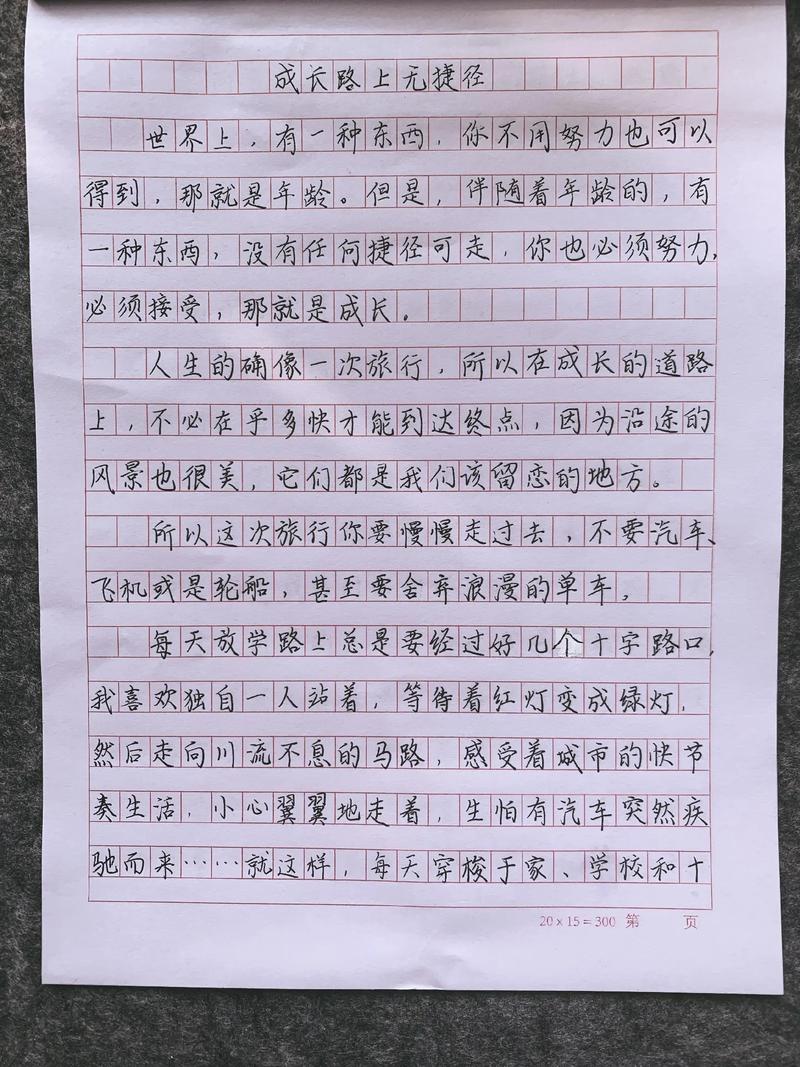 成长路上无捷径
世界上，有一种东西，你不用努力也可以
得到，那就是年龄。但是，伴随着年龄的，有
一种东西，没有任何捷径可走，你也必须努力，
必须接受，那就是成长。
人生的确像一次旅行，所以在成长的道路
上，不必在乎多快才能到达终点，因为沿途的
风景也很美，它们都是我们该留恋的地方。
所以这次旅行你要慢慢走过去，不要汽车、
飞机或是轮船，甚至要舍弃浪漫的单车，
每天放学路上总是要经过好几个十字路口，
我喜欢独自一人站着，等待着红灯变成绿灯，
然后走向川流不息的马路，感受着城市的快节
奏生活，小心翼翼地走着，生怕有汽车突然疾
驰而来……就这样，每天穿梭于家、学校和十
20×15=300 第 页